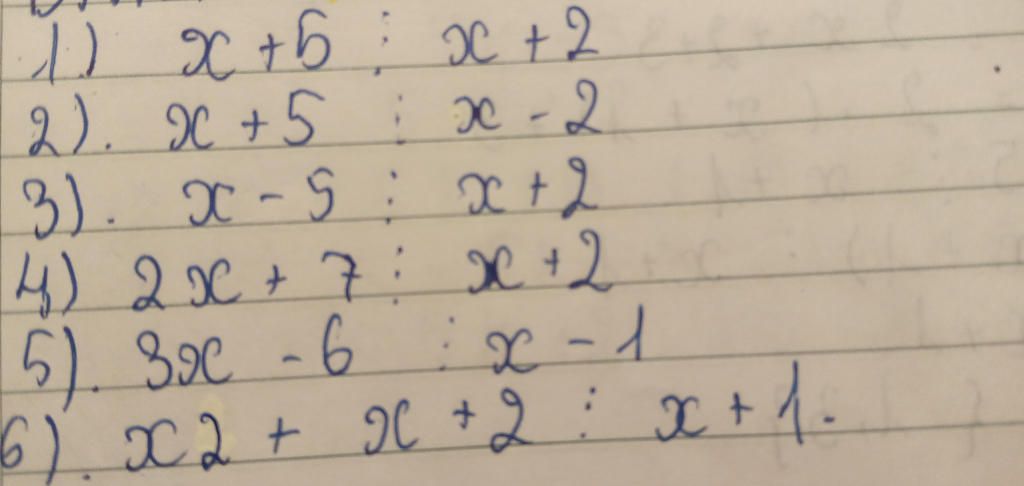 1.) x + 5 ⋮ x + 2
2). x + 5 ⋮ x - 2
3). x - 5 ⋮ x + 2
4) 2x + 7 ⋮ x + 2
5). 3x - 6 ⋮ x - 1
6). x2 + x + 2 ⋮ x + 1.